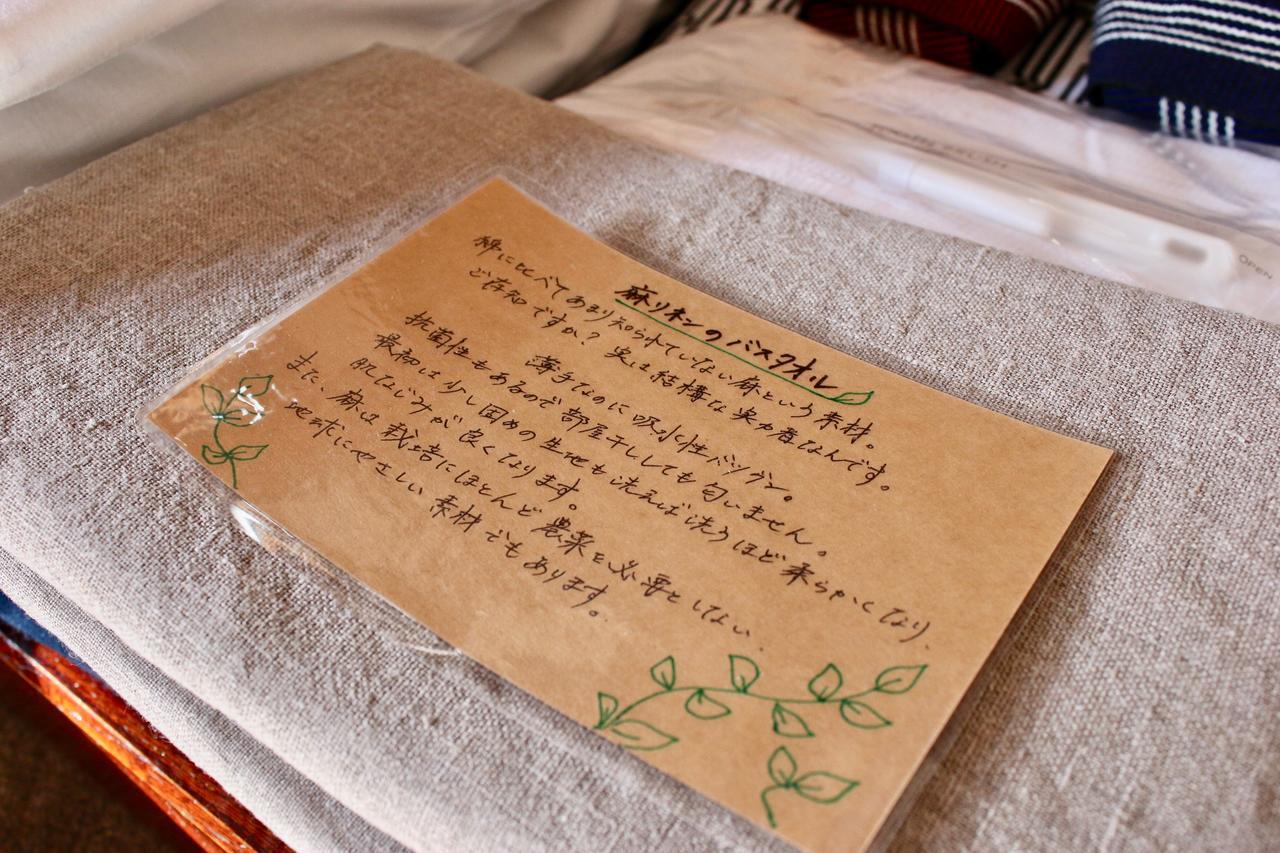 麻リネンのバスタオル
綿に比べてあまり知られていない麻という素材。
ご存知ですか？実は結構な実力者なんです。
薄手なのに吸水性バツグン。
抗菌性もあるので部屋干ししても匂いません。
最初は少し固めの生地も洗えば洗うほど柔らかくなり、
肌なじみが良くなります。
また、麻は栽培にほとんど農薬を必要としない
地球にやさしい素材でもあります。
OPEN